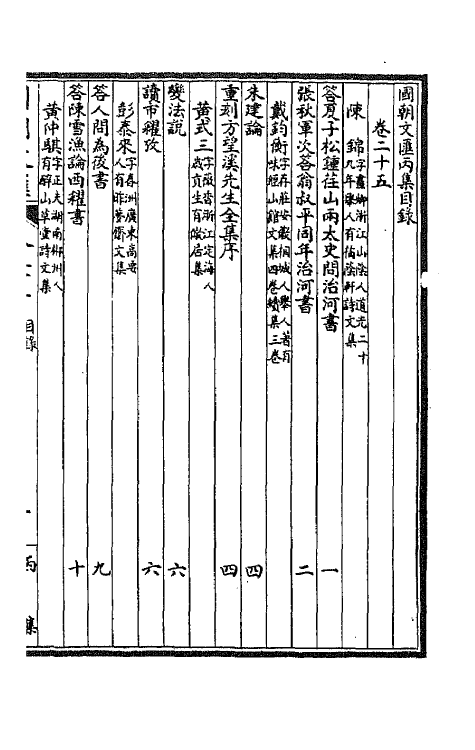 國朝文匯丙集目錄
卷二十五
陳錦 字畫卿浙江山陰人道光二十九年舉人有橘蔭軒詩文集
答夏子松鍾荏山兩太史問治河書 一
張秋軍次答翁叔平同年治河書 二
戴鈞衡 字存莊安徽桐城人舉人著有味經山館文集四卷續集三卷
朱建論 四
重刻方望溪先生全集序 四
黃式三 字薇香浙江定海人歲貢生有儆居集
讀市糴攷 六
變法說 六
彭泰來 字春洲廣東高要人有昨夢齋文集
答人問為後書 九
答陳雪漁論西糴書 十
黃仲騏 字正夫湖南郴州人有醉山草堂詩文集
目錄
一
丙集